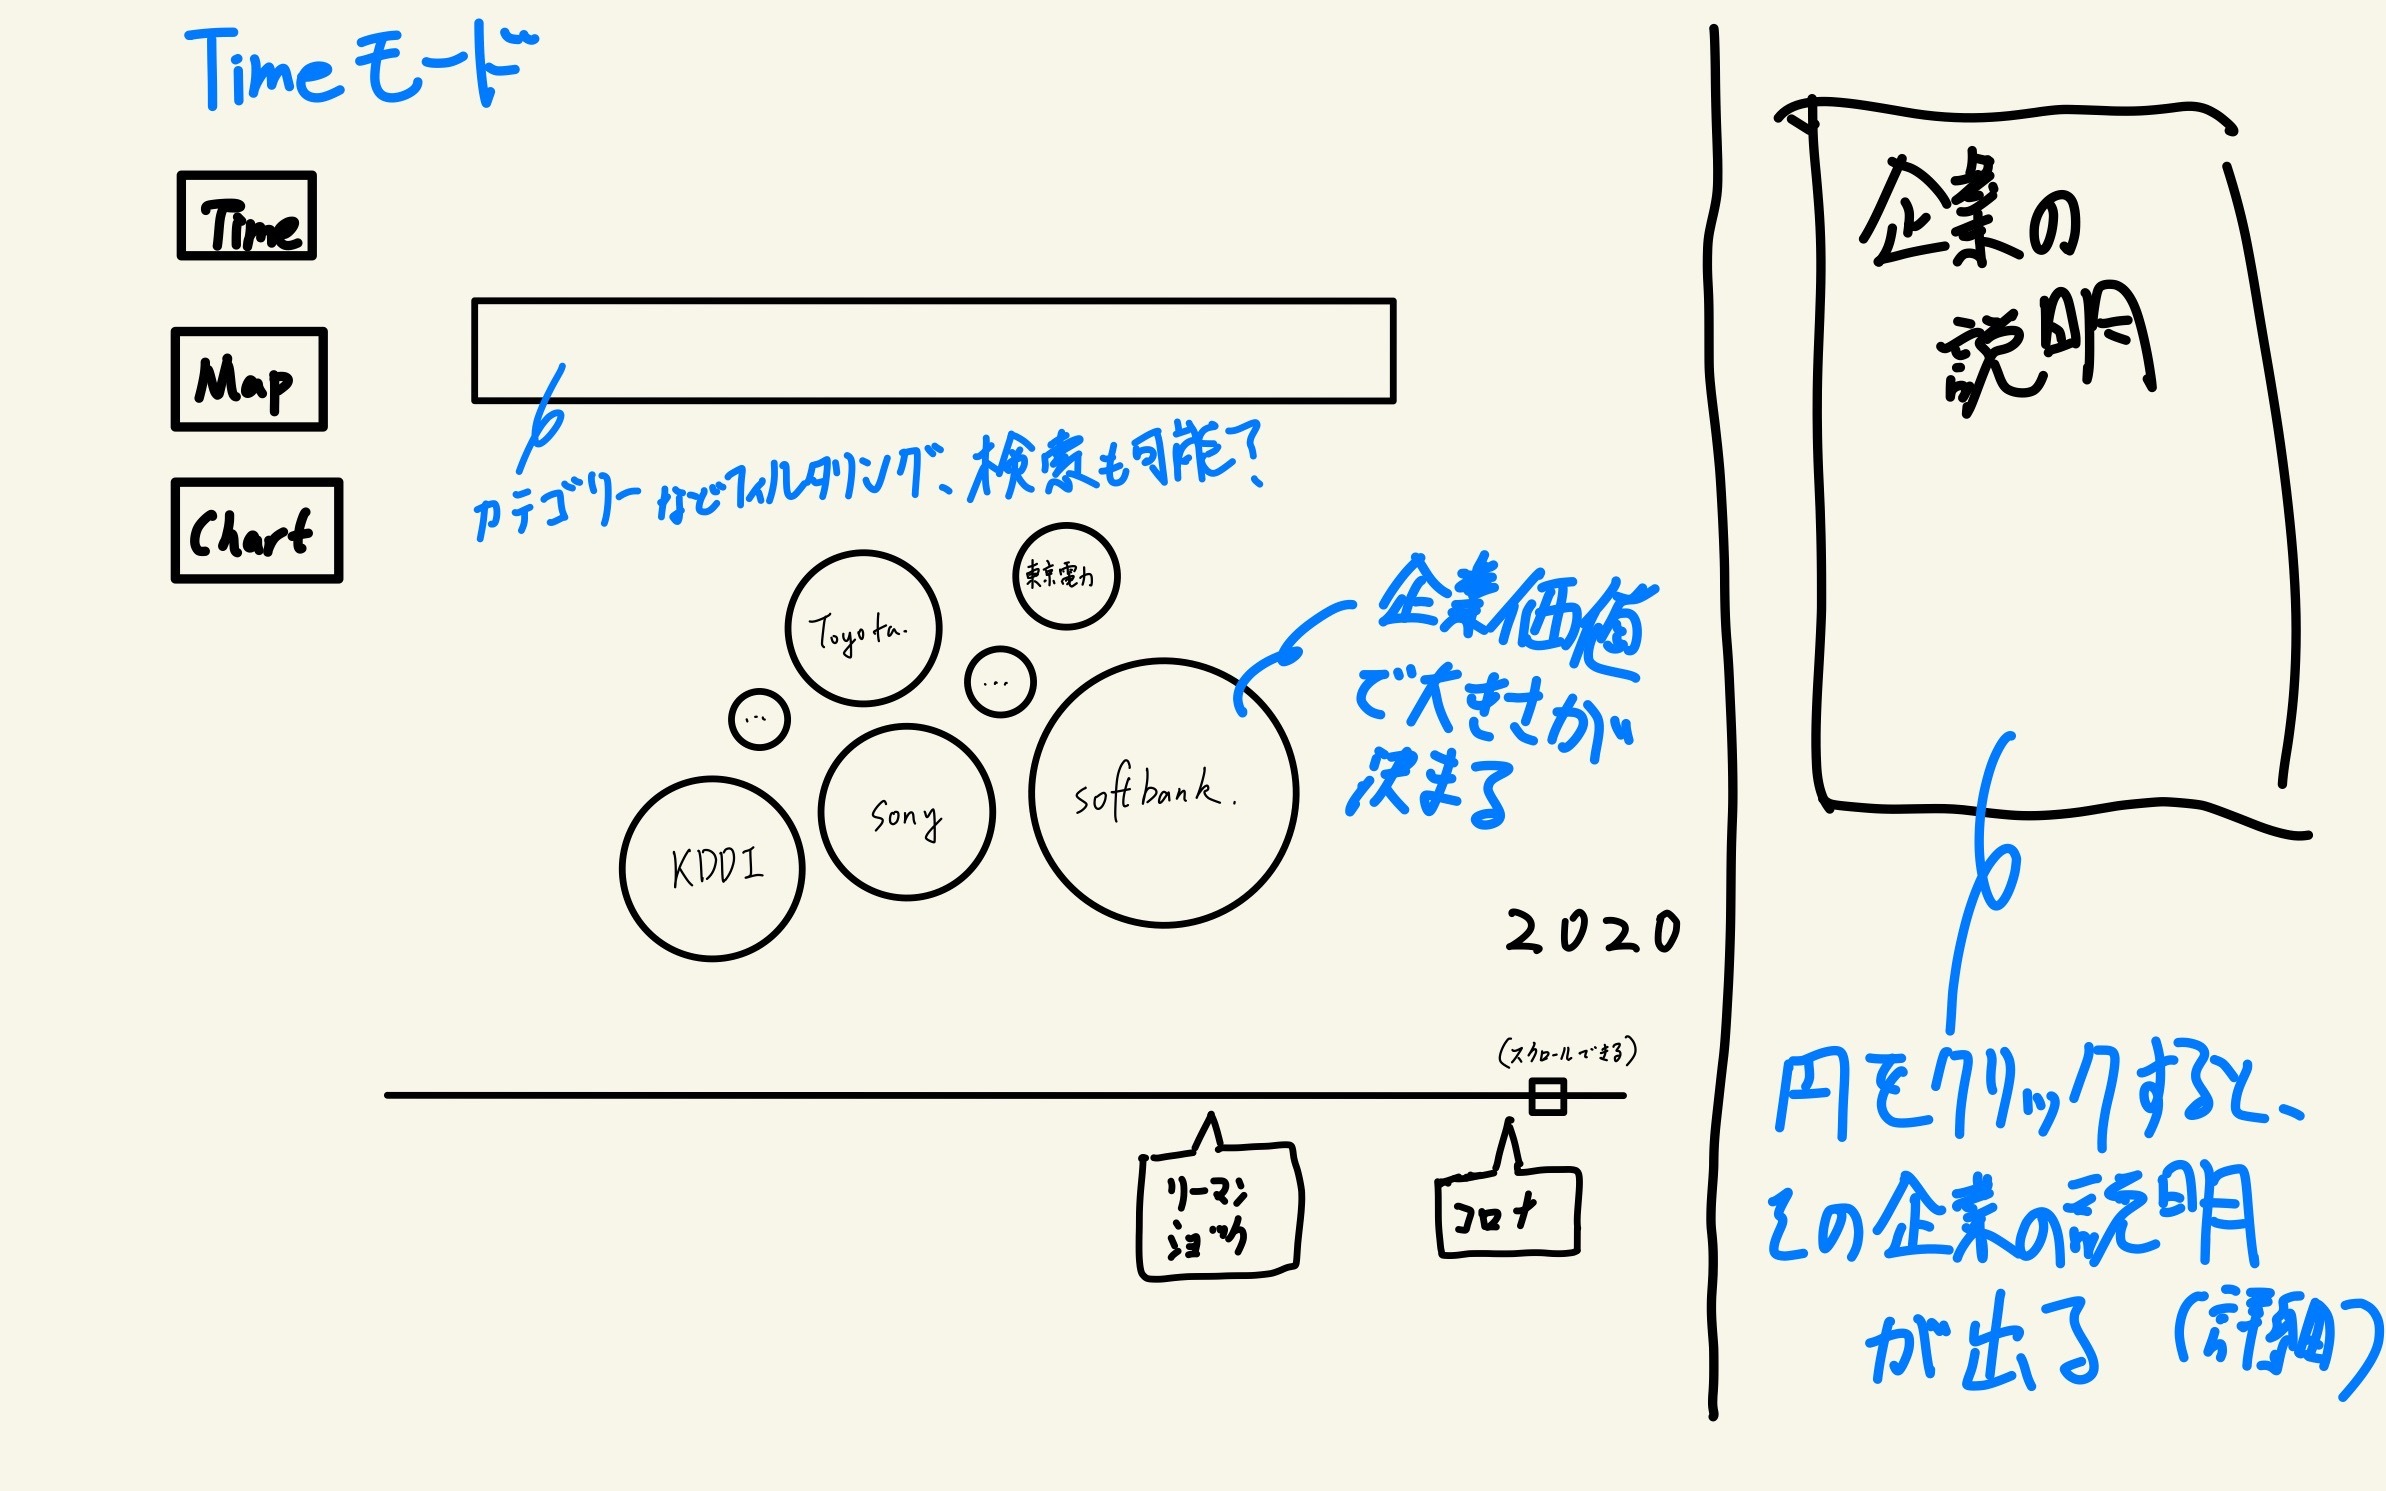 Timeモード
Time
Map
Chart
カテゴリーなどフィルタリング、検索も可能？
Toyota.
東京電力
...
...
KDDI
Sony
softbank.
企業価値
で大きさが
決まる
2020
(スクロールできる)
リーマン
ショック
コロナ
企業の
説明
円をクリックすると、
その企業の説明
が出る (詳細)